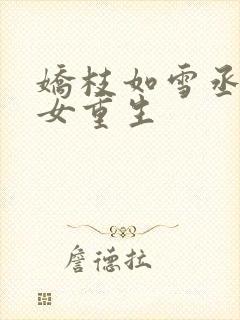 嬌枝如雪丞
女重生
詹德拉